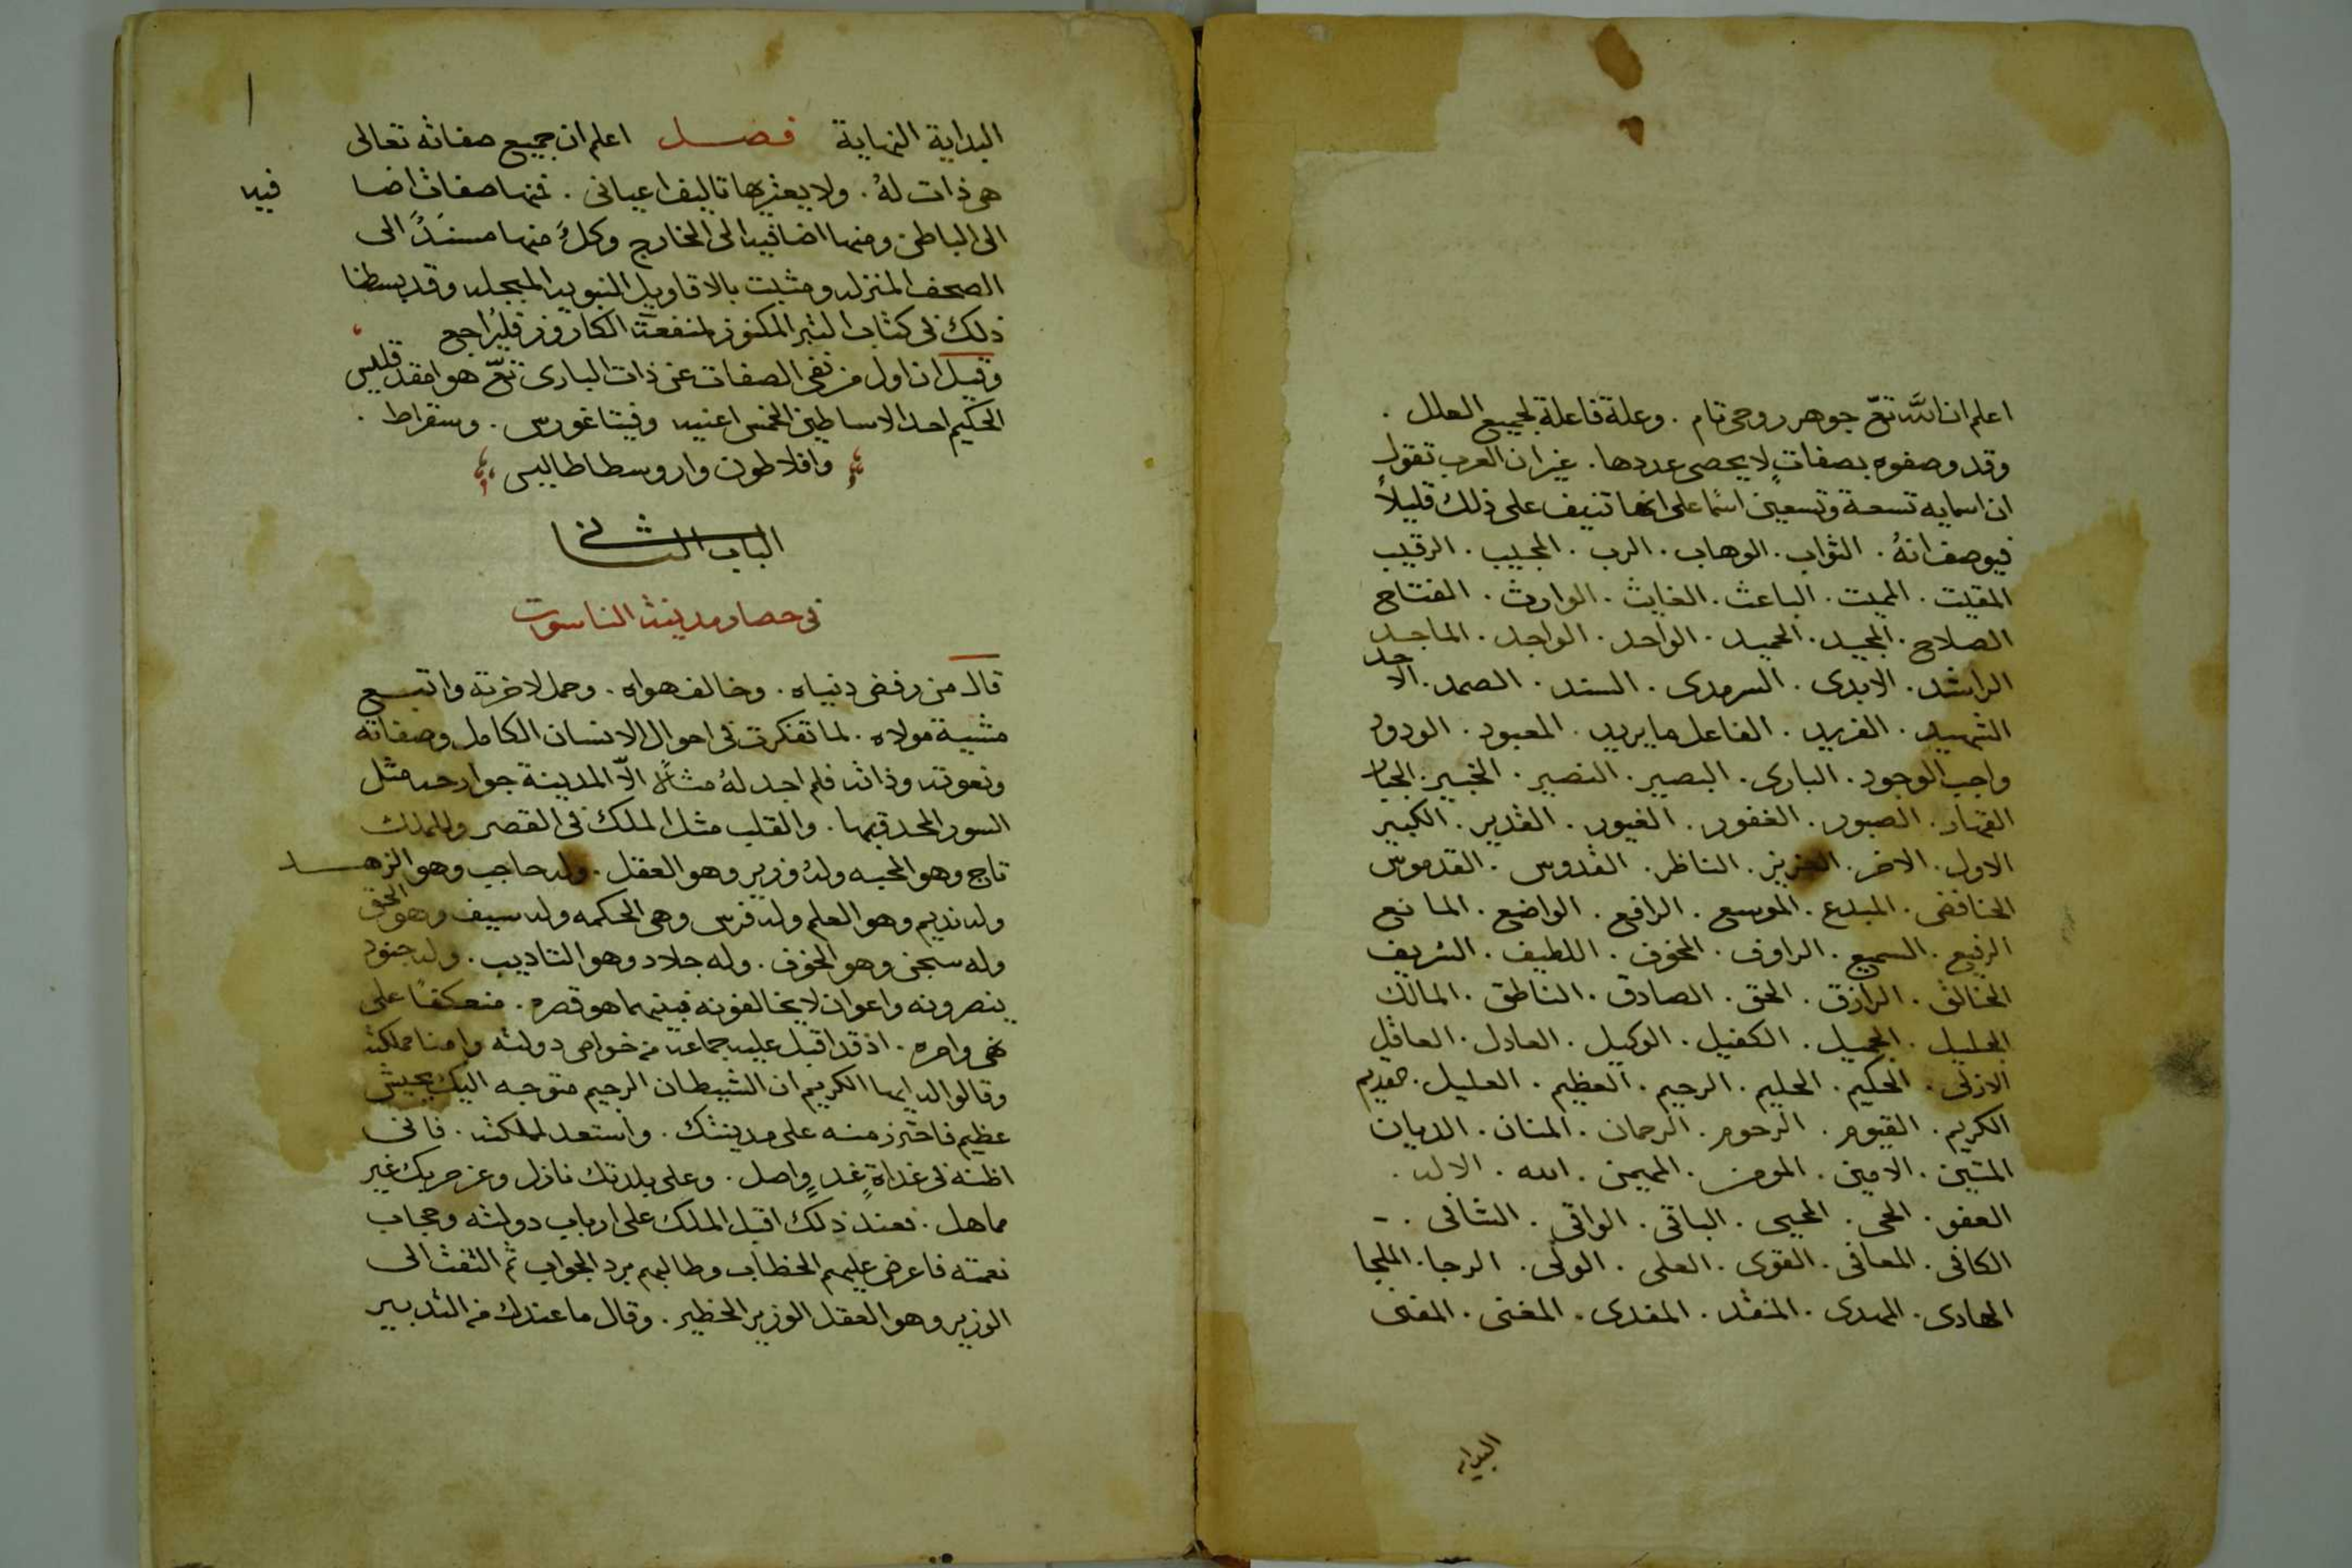 اعلم ان الله تعّ جوهر روحى تام . وعلة فاعلة لجميع العلل .
وقد وصفوه بصفاتٍ لا يحصى عددها . غير ان العرب تقول
ان اسمايه تسعة وتسعين اسمًا على انها تنيف على ذلك قليلاً
فيوصف انهُ . التواب . الوهاب . الرب . المجيب . الرقيب
المقيت . المميت . الباعث . الغايث . الوارث . الفتاح
الصلاح . المجيد . الحميد . الواحد . الواجد . الماجد
الراشد . الابدى . السرمدى . السند . الصمد . الاحد
الشهيد . الفريد . الفاعل ما يريد . المعبود . الودود
واجب الوجود . البارى . البصير . النصير . الخبير . الجبار
القهار . الصبور . الغفور . الغيور . القدير . الكبير
الاول . الاخر . العزيز . الناظر . القدوس . القدموس
الخافض . المبدع . الموسع . الرافع . الواضع . المانع
الرفيع . السميع . الراوف . المخوف . اللطيف . الشريف
الخالق . الرازق . الحق . الصادق . الناطق . المالك
الجليل . الجميل . الكفيل . الوكيل . العادل . العاقل
الازلى . الحكيم . الحليم . الرحيم . العظيم . العليل . القديم
الكريم . القيوم . الرحوم . الرحمان . المنان . الديان
المتين . الامين . المومن . المهيمن . الله . الاله .
العفو . الحى . المحيى . الباقى . الواقى . الشافى .
الكافى . المعافى . القوى . العلى . الولى . الرجا . الملجا
الهادى . المهدى . المنقد . المفدى . المغنى . المفنى
البدايه
١
البداية النهاية فصل اعلم ان جميع صفاته تعالى
هى ذات لهُ . ولا يعتريها تاليف اعيانى . فمنها صفات اضا فيه
الى الباطن ومنها اضافيه الى الخارج وكلٌ منها مسندٌ الى
الصحف المنزله ومثبت بالاقاويل النبويه المبجله وقد بسطنا
ذلك فى كتاب التبر المكنوز لمنفعة الكاروز فليُراجع
وقيل ان اول من نفى الصفات عن ذات البارى تعّ هو امفدقليس
الحكيم احد الاساطين الخمس اعنيه وفيتاغورس . وسقراط .
وافلاطون واروسطاطاليس
الباب الثانى
فى حصار مدينة الناسوت
قال من رفض دنياه . وخالف هواه . وحمل لاخرته واتبع
مشية مولاه . لما تفكرت فى احوال الانسان الكامل وصفاته
ونعوته وذاته فلم اجد لهُ مثالاً الاّ المدينة جوارحه مثل
السور المحدق بها . والقلب مثل الملك فى القصر وللملك
تاج وهو المحبه ولهُ وزير وهو العقل . وله حاجب وهو الزهد
وله نديم وهو العلم وله فرس وهى الحكمه وله سيف وهو الحق
وله سجن وهو الخوف . وله جلاد وهو التاديب . وله جنود
ينصرونه واعوان لا يخالفونه فبينما هو قصره . منعكفًا على
نهى وامره . اذ قد اقبل عليه جماعة من خواص دولته وامنا مملكته
وقالوا له ايها الكريم ان الشيطان الرجيم متوجه اليك بجيش
عظيم فاحترز منه على مدينتك . واستعد لمملكته . فانى
اظنه فى غداةٍ غدٍ واصل . وعلى بلدتك نازل وعن حربك غير
ماهل . فعند ذلك اقبل الملك على ارباب دولته وحجاب
نعمته فاعرض عليهم الخطاب وطالبهم برد الجواب ثم التفت الى
الوزير وهو العقل الوزير الخطير . وقال ما عندك من التدبير